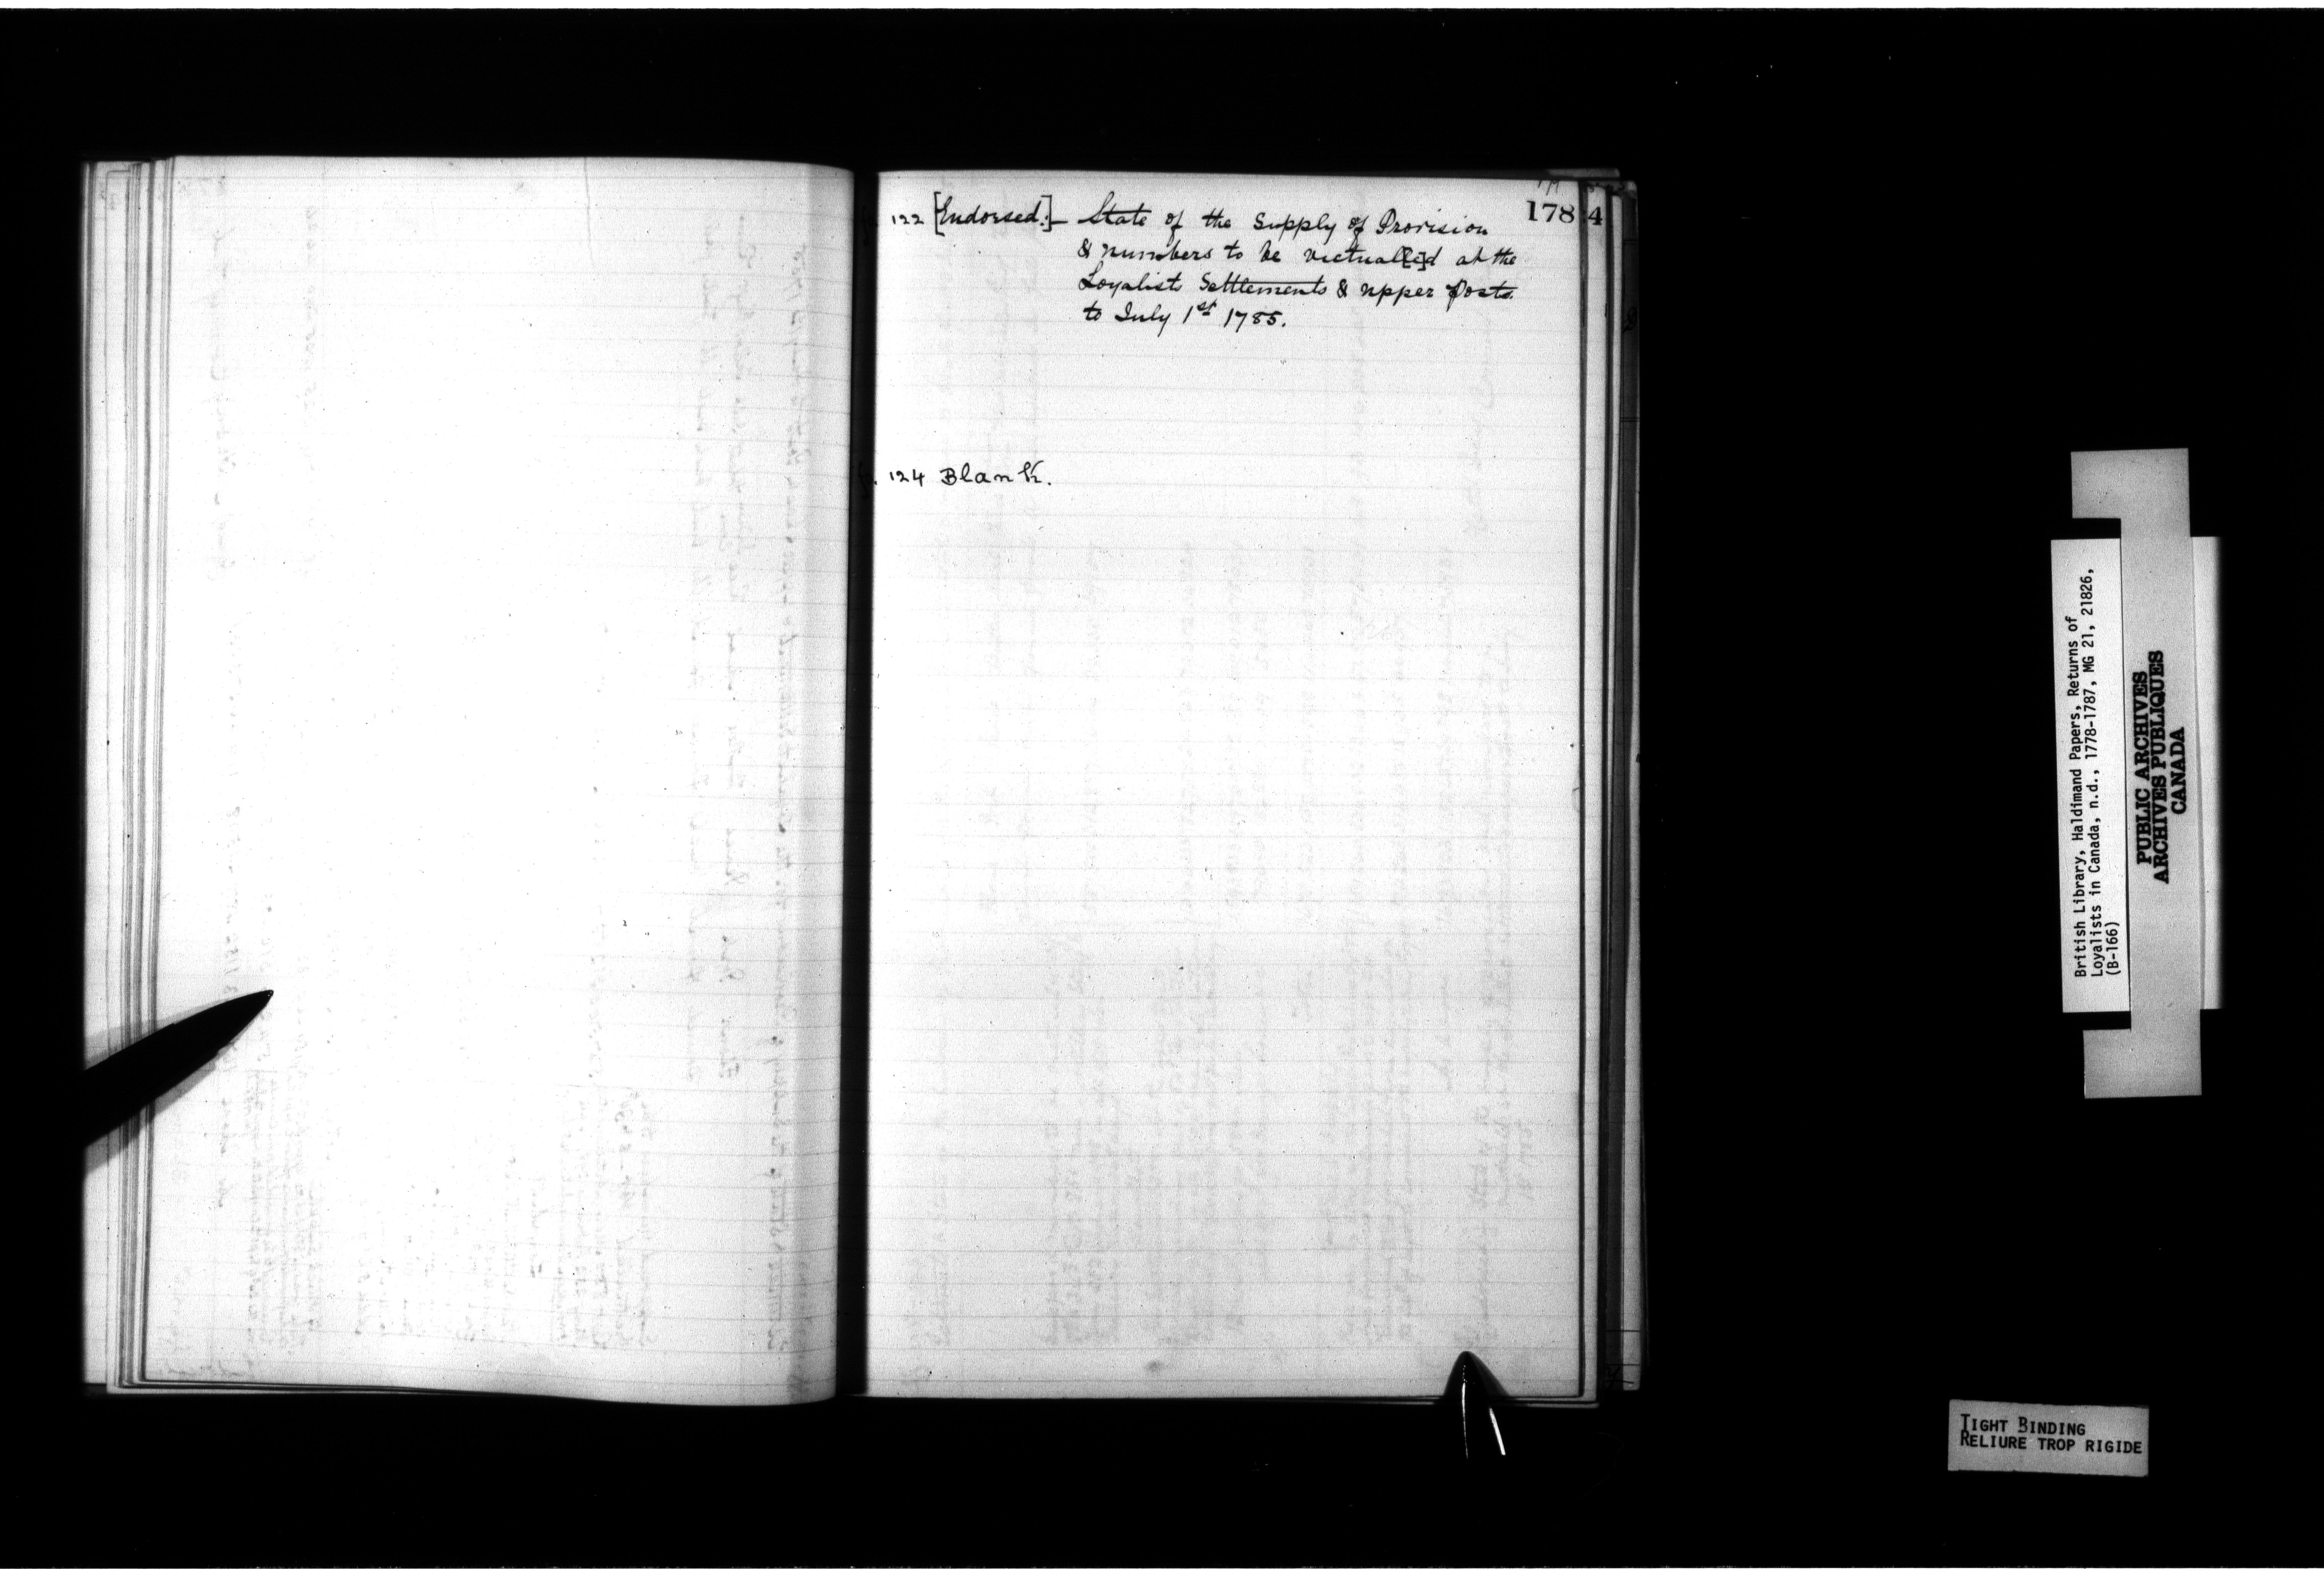 178
4
122 [Endorsed:]— State of the Supply of Provision
& numbers to be victual[le]d at the
Loyalists Settlements & upper Posts
to July 1st 1785.
124 Blank.
British Library, Haldimand Papers, Returns of
Loyalists in Canada, n.d., 1778-1787, MG 21, 21826,
(B-166)
PUBLIC ARCHIVES
ARCHIVES PUBLIQUES
CANADA
TIGHT BINDING
RELIURE TROP RIGIDE